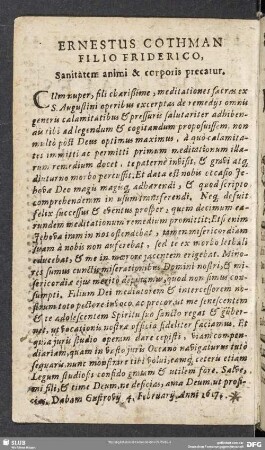 ERNESTUS COTHMAN
FILIO FRIDERICO,
Sanitatem animi & corporis precatur.
CUm nuper, fili charissime, meditationes sacras ex
S. Augustini operibus excerptas de remedijs omnis
generis calamitatibus & pressuris salutariter adhiben-
tibi ad legendum & cogitandum proposuissem. non
multò pòst Deus optimus maximus, à quo calamita-
tes immitti ac permitti primum meditationum illa-
rum remedium docet, te paterne invisit, & gravi atq;
diuturno morbo percussit, Et data est nobis occasio Je-
hovæ Deo magis magisq; adhærendi, & quod scripto
comprehenderam in usum transferendi. Neq; defuit
felix successus & eventus prosper, quem decimum ea-
rundem meditationum remedium promittit; Etsi enim
Jehova iram in nos ostendebat, tamen misericordiam
suam à nobis non auferebat, sed te ex morbo lethali
educebat, & me in mœrore jacentem erigebat. Mino-
res sumus cunctis miserationibus Domini nostri, & mi-
sericordia ejus meritò quod non simus con-
sumpti, Filium Dei mediatorem & intercessorem no-
strum toto pectore invoco, ac precor, ut me senescentem
& te adolescentem Spiritu suo sancto regat & guber-
net, ut vocationis nostræ officia fideliter faciamus. Et
quia juris studio operam dare cepisti, viam compen-
diariam, quam in vasto juris Oceano navigaturus tutò
sequaris nunc monstrare tibi volui, eamq; ceteris etiam
Legum studiosis confido gratum & utilem fore. Salve,
mi fili, & time Deum, ne desicias, ama Deum, ut profi-
cias, Dabam Gustrovij 4. Februarij, Anni 1614.
SLUB